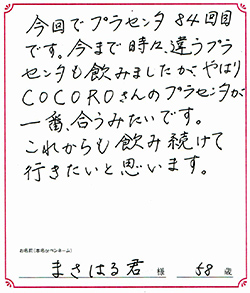 今回でプラセンタ84回目
です。今まで時々、違うプラ
センタも飲みましたが、やはり
COCOROさんのプラセンタが
一番、合うみたいです。
これからも飲み続けて
行きたいと思います。
お名前(本名orペンネーム)
まさはる君 様 58歳